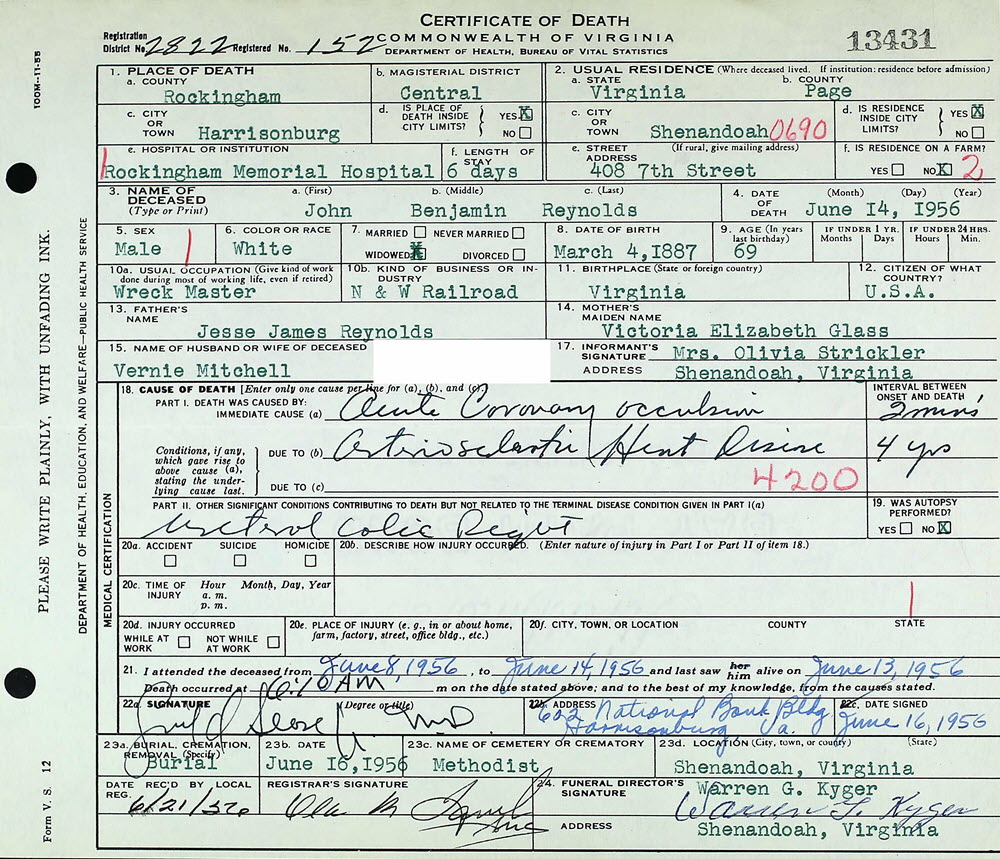 CERTIFICATE OF DEATH
COMMONWEALTH OF VIRGINIA
DEPARTMENT OF HEALTH, BUREAU OF VITAL STATISTICS
Registration District No. 2822 Registered No. 152
13431
100M--11-55
1. PLACE OF DEATH
a. COUNTY
Rockingham
b. MAGISTERIAL DISTRICT
Central
2. USUAL RESIDENCE (Where deceased lived. If institution: residence before admission)
a. STATE
Virginia
b. COUNTY
Page
c. CITY OR TOWN Harrisonburg
d. IS PLACE OF DEATH INSIDE CITY LIMITS? YES X NO
c. CITY OR TOWN Shenandoah 0690
d. IS RESIDENCE INSIDE CITY LIMITS? YES X NO
e. HOSPITAL OR INSTITUTION
Rockingham Memorial Hospital
f. LENGTH OF STAY
6 days
e. STREET ADDRESS (If rural, give mailing address)
408 7th Street
f. IS RESIDENCE ON A FARM?
YES NO X 2
3. NAME OF DECEASED (Type or Print)
a. (First) b. (Middle) c. (Last)
John Benjamin Reynolds
4. DATE OF DEATH (Month) (Day) (Year)
June 14, 1956
5. SEX
Male
6. COLOR OR RACE
White
7. MARRIED NEVER MARRIED
WIDOWED X DIVORCED
8. DATE OF BIRTH
March 4,1887
9. AGE (In years last birthday)
69
IF UNDER 1 YR. Months Days
IF UNDER 24 HRS. Hours Min.
10a. USUAL OCCUPATION (Give kind of work done during most of working life, even if retired)
Wreck Master
10b. KIND OF BUSINESS OR INDUSTRY
N & W Railroad
11. BIRTHPLACE (State or foreign country)
Virginia
12. CITIZEN OF WHAT COUNTRY?
U.S.A.
13. FATHER'S NAME
Jesse James Reynolds
14. MOTHER'S MAIDEN NAME
Victoria Elizabeth Glass
15. NAME OF HUSBAND OR WIFE OF DECEASED
Vernie Mitchell
17. INFORMANT'S SIGNATURE Mrs. Olivia Strickler
ADDRESS Shenandoah, Virginia
18. CAUSE OF DEATH [Enter only one cause per line for (a), (b), and (c).]
PART I. DEATH WAS CAUSED BY:
IMMEDIATE CAUSE (a) Acute Coronary occulsion
INTERVAL BETWEEN ONSET AND DEATH
2 mins
Conditions, if any, which gave rise to above cause (a), stating the underlying cause last.
DUE TO (b) Arteriosclerotic Heart Disease
4 yrs
DUE TO (c)
4200
PART II. OTHER SIGNIFICANT CONDITIONS CONTRIBUTING TO DEATH BUT NOT RELATED TO THE TERMINAL DISEASE CONDITION GIVEN IN PART I(a)
Ureteral Colic Right
19. WAS AUTOPSY PERFORMED?
YES NO X
20a. ACCIDENT SUICIDE HOMICIDE
20b. DESCRIBE HOW INJURY OCCURRED. (Enter nature of injury in Part I or Part II of item 18.)
20c. TIME OF INJURY Hour a. m. p. m. Month, Day, Year
20d. INJURY OCCURRED
WHILE AT WORK NOT WHILE AT WORK
20e. PLACE OF INJURY (e. g., in or about home, farm, factory, street, office bldg., etc.)
20f. CITY, TOWN, OR LOCATION COUNTY STATE
21. I attended the deceased from June 8, 1956, to June 14, 1956 and last saw her him alive on June 13, 1956
Death occurred at 6:10 AM m on the date stated above; and to the best of my knowledge, from the causes stated.
22a. SIGNATURE (Degree or title)
M.D.
22b. ADDRESS
602 National Bank Bldg
Harrisonburg Va.
22c. DATE SIGNED
June 16, 1956
23a. BURIAL, CREMATION, REMOVAL (Specify)
Burial
23b. DATE
June 16,1956
23c. NAME OF CEMETERY OR CREMATORY
Methodist
23d. LOCATION (City, town, or county) (State)
Shenandoah, Virginia
DATE REC'D BY LOCAL REG.
6/21/56
REGISTRAR'S SIGNATURE
24. FUNERAL DIRECTOR'S SIGNATURE
Warren G. Kyger
Warren G. Kyger
ADDRESS Shenandoah, Virginia
PLEASE WRITE PLAINLY, WITH UNFADING INK.
DEPARTMENT OF HEALTH, EDUCATION, AND WELFARE—PUBLIC HEALTH SERVICE
MEDICAL CERTIFICATION
Form V. S. 12